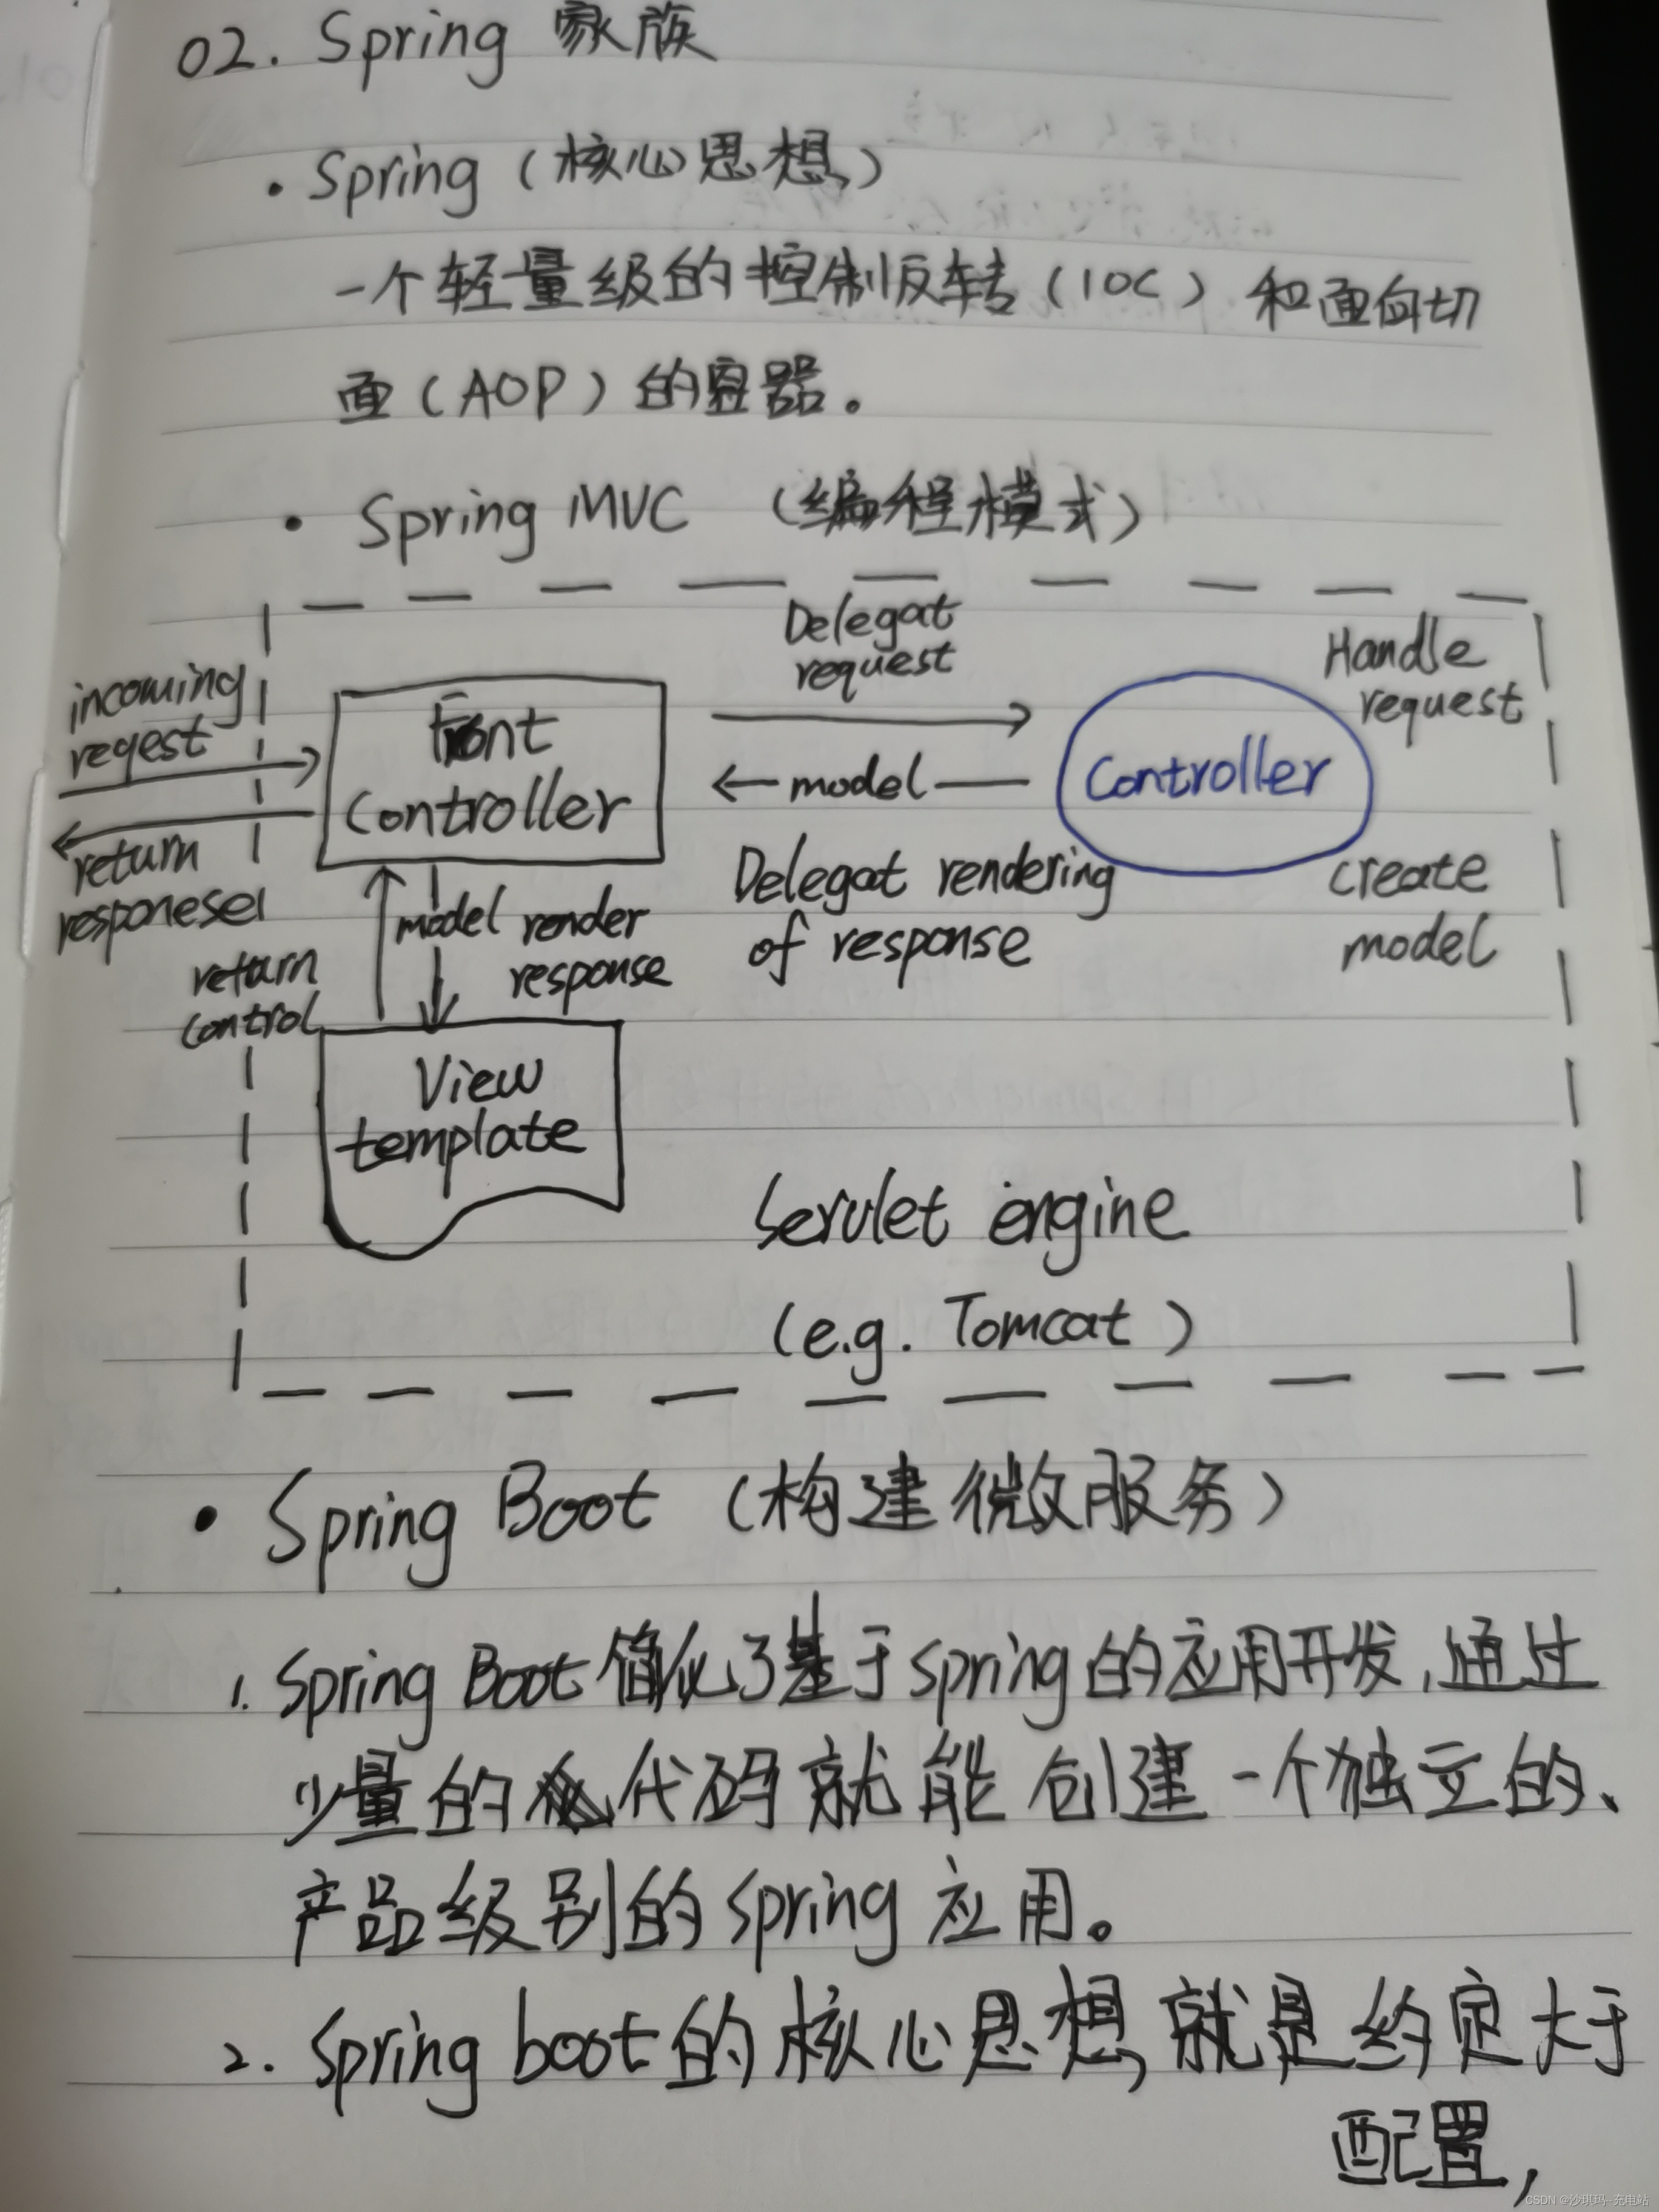 02. Spring 家族
· Spring (核心思想)
一个轻量级的控制反转(IOC) 和面向切
面(AOP)的容器。
· Spring MVC (编程模式)
Delegat
request
Handle
request
incoming
reqest
Front
Controller
model
Controller
return
responesel
Delegat rendering
of response
create
model
model
render
response
return
control
View
template
Servlet engine
(e.g. Tomcat)
· Spring Boot (构建微服务)
1. Spring Boot 简化了基于spring的应用开发,通过
少量的代码就能创建一个独立的、
产品级别的spring应用。
2. Spring boot的核心思想,就是约定大于
配置,
CSDN @沙琪玛-充电站